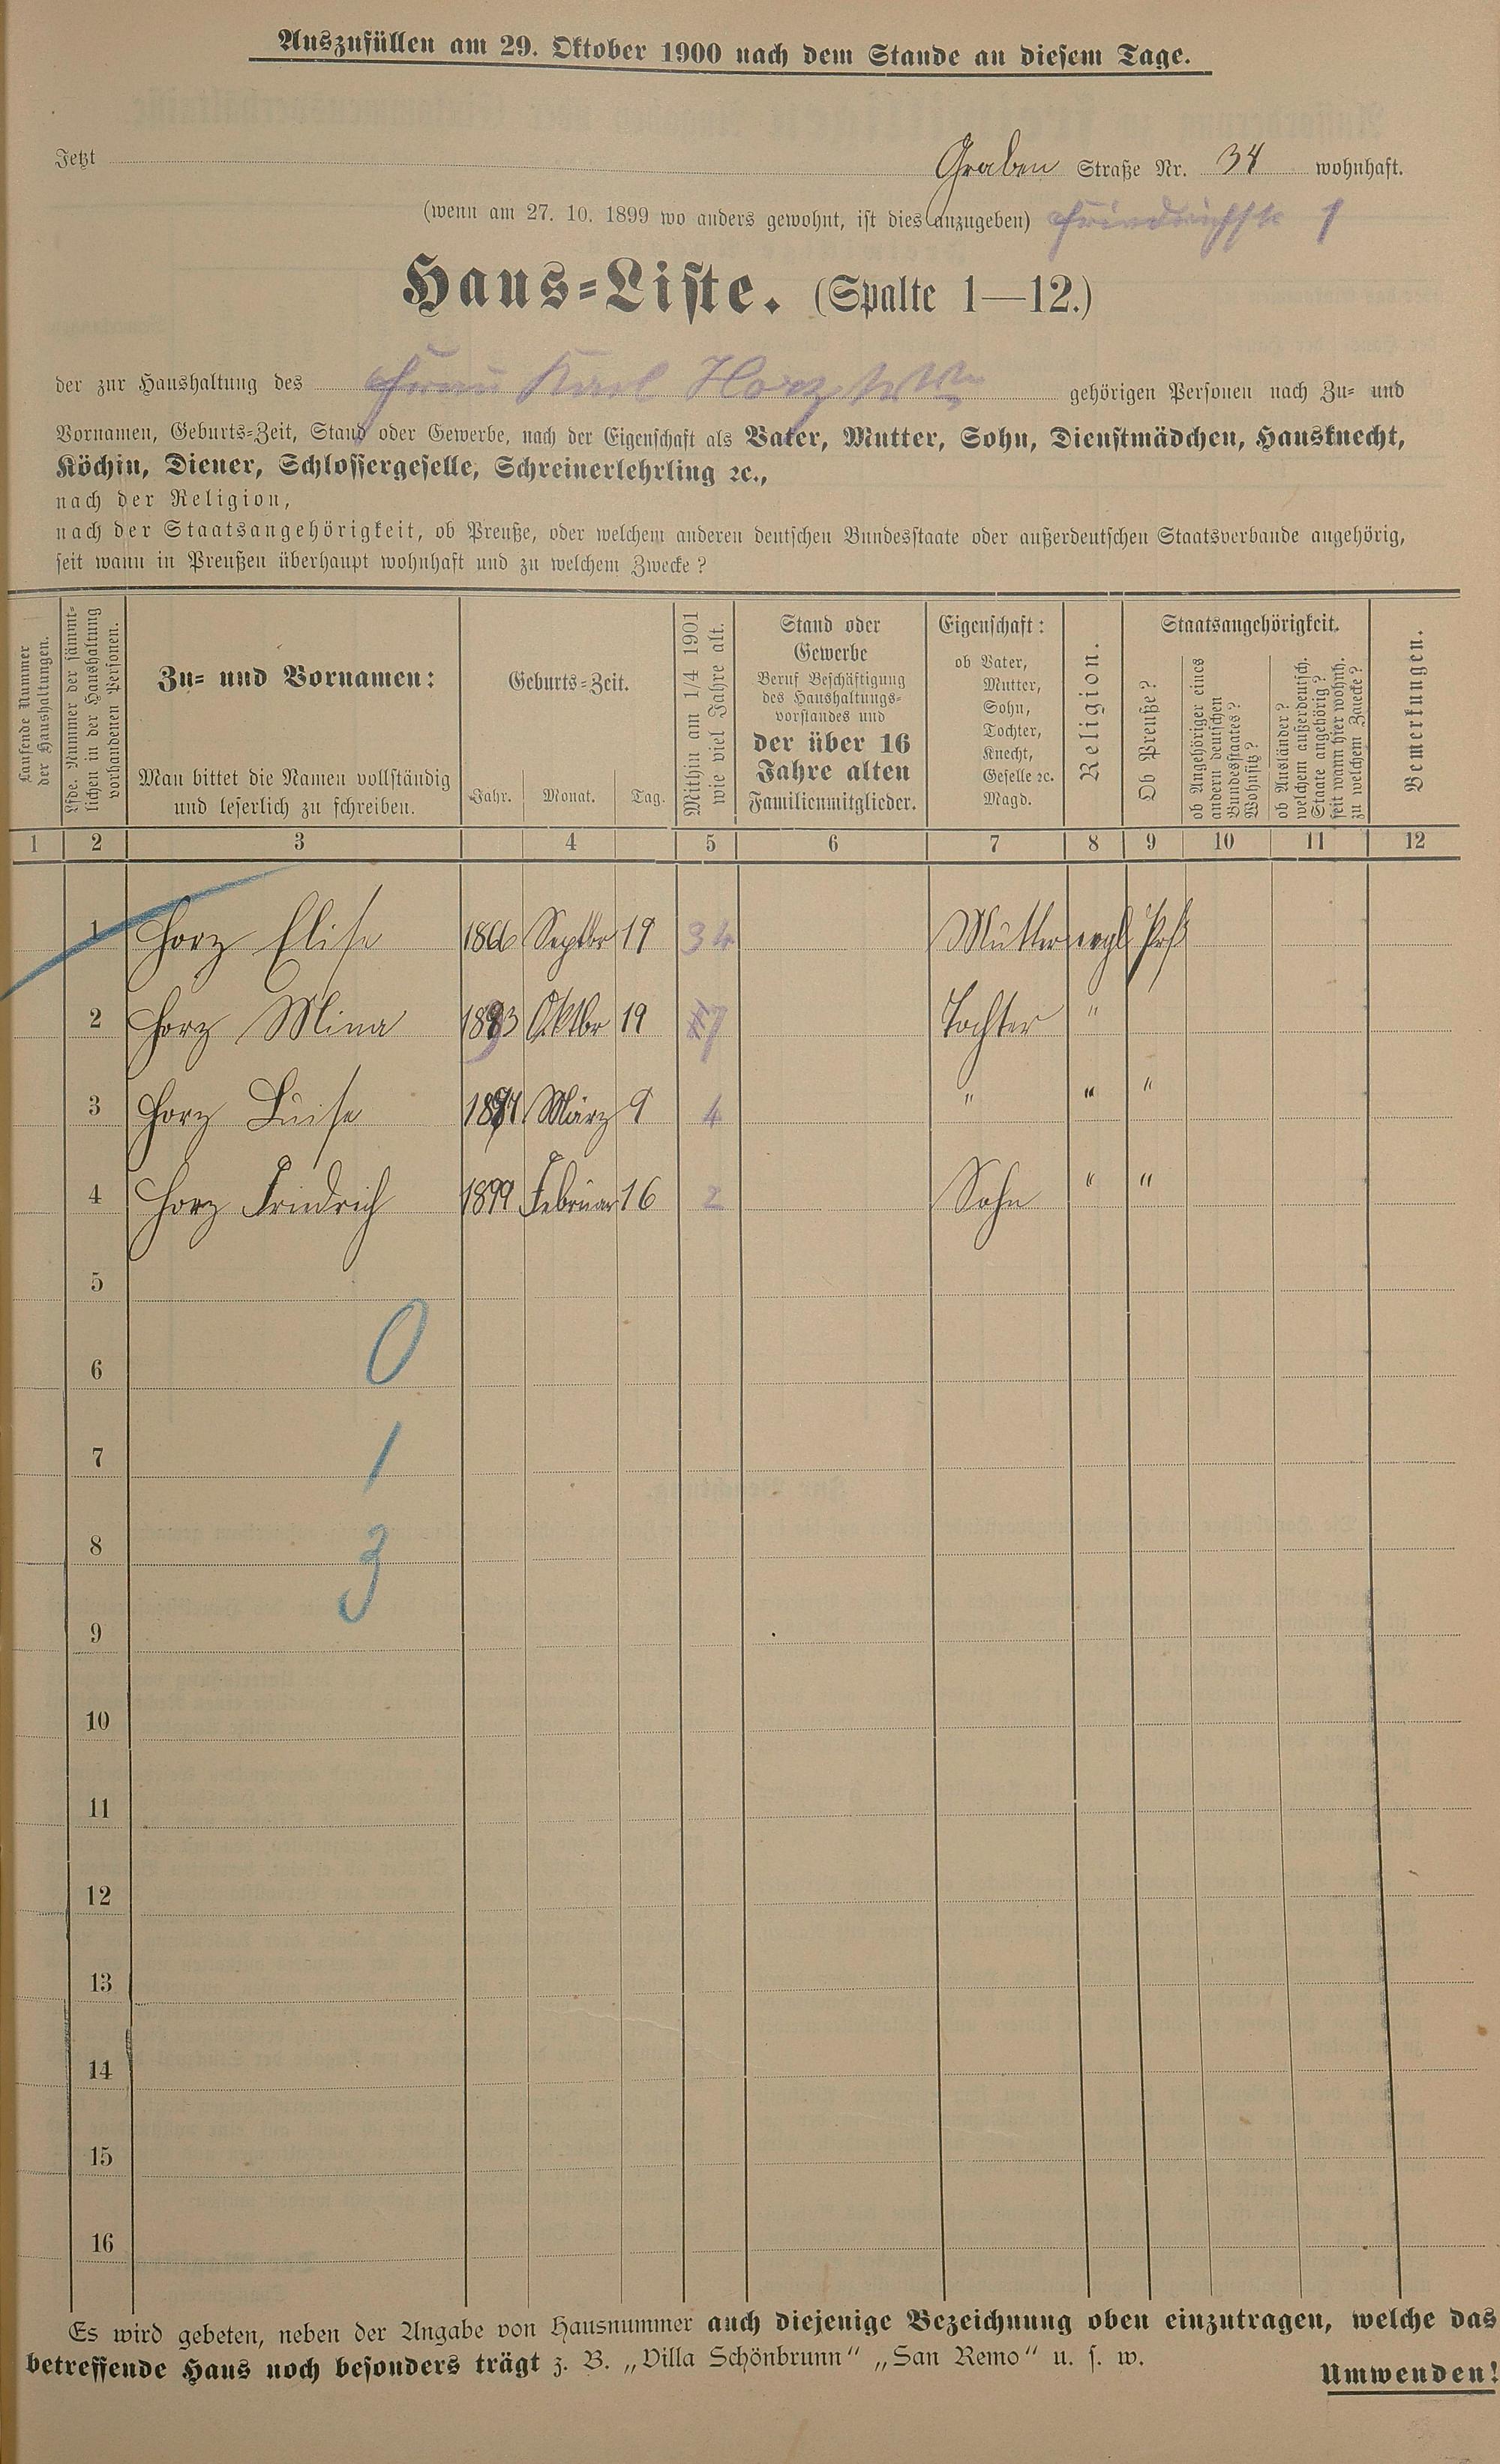 Auszufüllen am 29. Oktober 1900 nach dem Stande an diesem Tage.
Jetzt Graben Straße Nr. 34 wohnhaft.
(wenn am 27. 10. 1899 wo anders gewohnt, ist dies anzugeben) Friedrichstr 1
Haus-Liste. (Spalte 1—12.)
der zur Haushaltung des Frau Karl Horz Wwe gehörigen Personen nach Zu- und
Vornamen, Geburts-Zeit, Stand oder Gewerbe, nach der Eigenschaft als Vater, Mutter, Sohn, Dienstmädchen, Hausknecht,
Köchin, Diener, Schlossergeselle, Schreinerlehrling ꝛc.,
nach der Religion,
nach der Staatsangehörigkeit, ob Preuße, oder welchem anderen deutschen Bundesstaate oder außerdeutschen Staatsverbande angehörig,
seit wann in Preußen überhaupt wohnhaft und zu welchem Zwecke?
Laufende Nummer
der Haushaltungen.
Lfde. Nummer der sämmt-
lichen in der Haushaltung
vorhandenen Personen.
Zu- und Vornamen:
Man bittet die Namen vollständig
und leserlich zu schreiben.
Geburts-Zeit.
Jahr. Monat. Tag.
Mithin am 1/4 1901
wie viel Jahre alt.
Stand oder
Gewerbe
Beruf Beschäftigung
des Haushaltungs-
vorstandes und
der über 16
Jahre alten
Familienmitglieder.
Eigenschaft:
ob Vater,
Mutter,
Sohn,
Tochter,
Knecht,
Geselle ꝛc.
Magd.
Religion.
Staatsangehörigkeit.
Ob Preuße?
ob Angehöriger eines
andern deutschen
Bundesstaates?
Wohnsitz?
ob Ausländer?
welchem außerdeutsch.
Staate angehörig?
seit wann hier wohnh.
zu welchem Zwecke?
Bemerkungen.
1 2 3 4 5 6 7 8 9 10 11 12
1 Horz Elise 1866 Septbr 19 34 Mutter evgl Prß
2 Horz Mina 1893 Oktbr 19 7 Tochter "
3 Horz Luise 1897 März 9 4 " " "
4 Horz Friedrich 1899 Februar 16 2 Sohn " "
5
0
6
7 1
8 3
9
10
11
12
13
14
15
16
Es wird gebeten, neben der Angabe von Hausnummer auch diejenige Bezeichnung oben einzutragen, welche das
betreffende Haus noch besonders trägt z. B. „Villa Schönbrunn" „San Remo" u. s. w.
Umwenden!